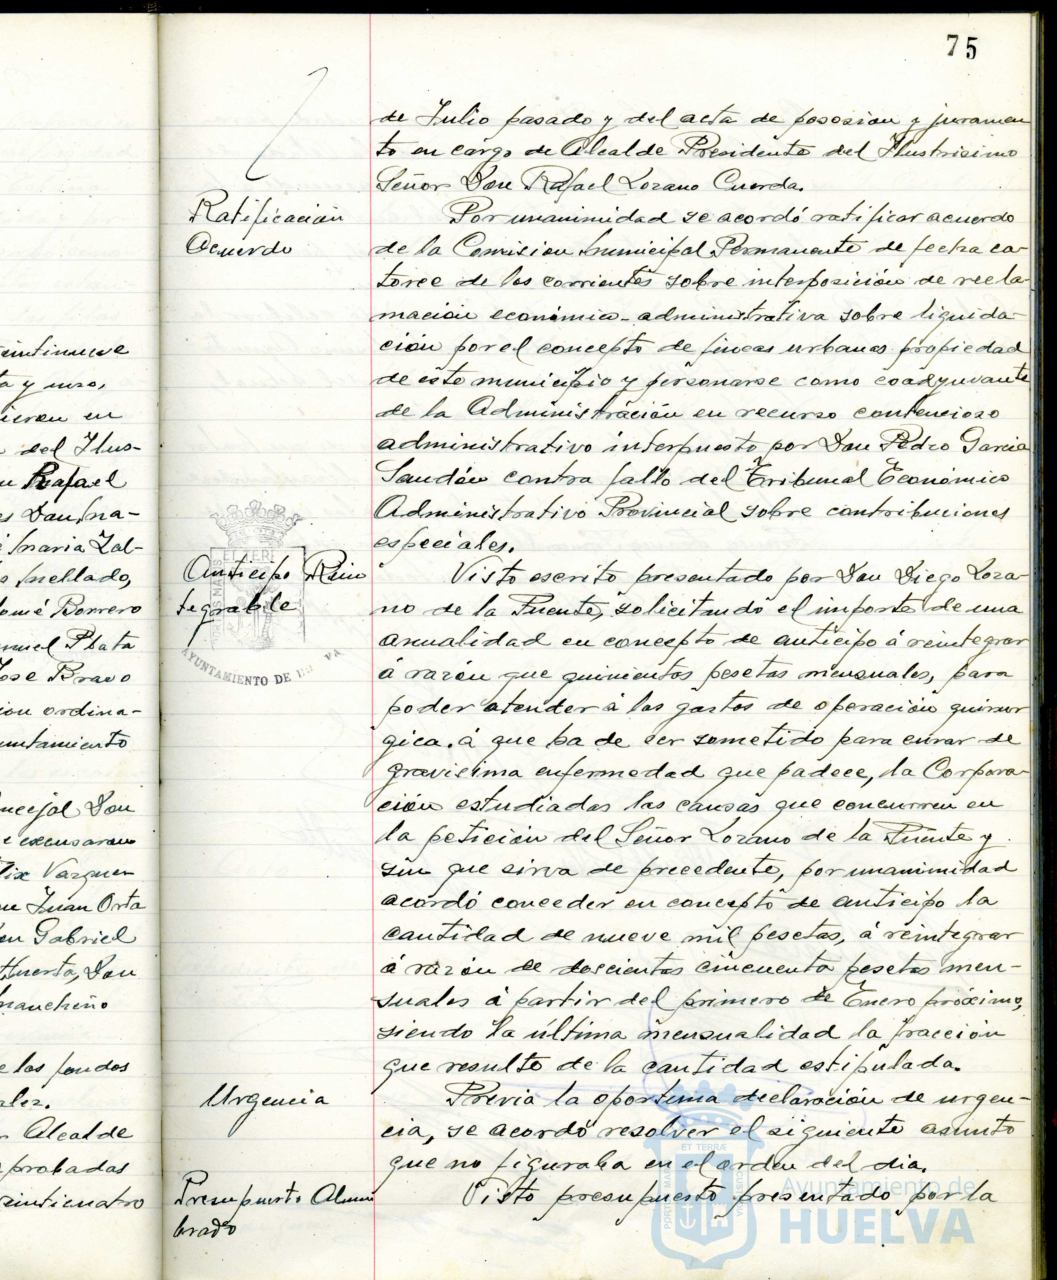 75
de Julio pasado y del acta de posesion y juramen
to en cargo de Alcalde Presidente del Ilustrisimo
Señor Don Rafael Lozano Cuerda.
Ratificación
Acuerdo
Por unanimidad se acordó ratificar acuerdo
de la Comision Municipal Permanente de fecha ca-
torce de los corrientes sobre interposición de recla-
mación económico-administrativa sobre liquida-
ción por el concepto de fincas urbanas propiedad
de este municipio y personarse como coadyuvante
de la Administración en recurso contencioso
administrativo interpuesto por Don Pedro Garcia
contra fallo del Tribunal Económico
Administrativo Provincial sobre contribuciones
especiales.
Anticipo Rein
tegrable
Visto escrito presentado por Don Diego Loza-
no de la Fuente, solicitando el importe de una
anualidad en concepto de anticipo á reintegrar
á razón que quinientas pesetas mensuales, para
poder atender á los gastos de operación quirur
gica. á que ha de ser sometido para curar de
gravisima enfermedad que padece, la Corpora-
ción estudiadas las causas que concurren en
la petición del Señor Lozano de la Fuente y
sin que sirva de precedente, por unanimidad
acordó conceder en concepto de anticipo la
cantidad de nueve mil pesetas, á reintegrar
á razón de doscientas cincuenta pesetas men-
suales á partir del primero de Enero próximo,
siendo la última mensualidad la fracción
que resulte de la cantidad estipulada.
Urgencia
Previa la oportuna declaración de urgen-
cia, se acordó resolver el siguiente asunto
que no figuraba en el orden del dia.
Presupuesto Alum
brado
Visto presupuesto presentado por la
eintinueve
ta y uno,
ieron en
del Ilus-
Rafael
es Don Ma-
Maria Zal-
Mellado,
lomé Borrero
nuel Plata
Jose Bravo
ion ordina-
untamiento
ncejal Don
e excusaron
lix Vazquez
Juan Orta
on Gabriel
Huerta, Don
Mancheño
e los fondos
alez.
Alcalde
probadas
einticuatro
AYUNTAMIENTO DE
Ayuntamiento de
HUELVA